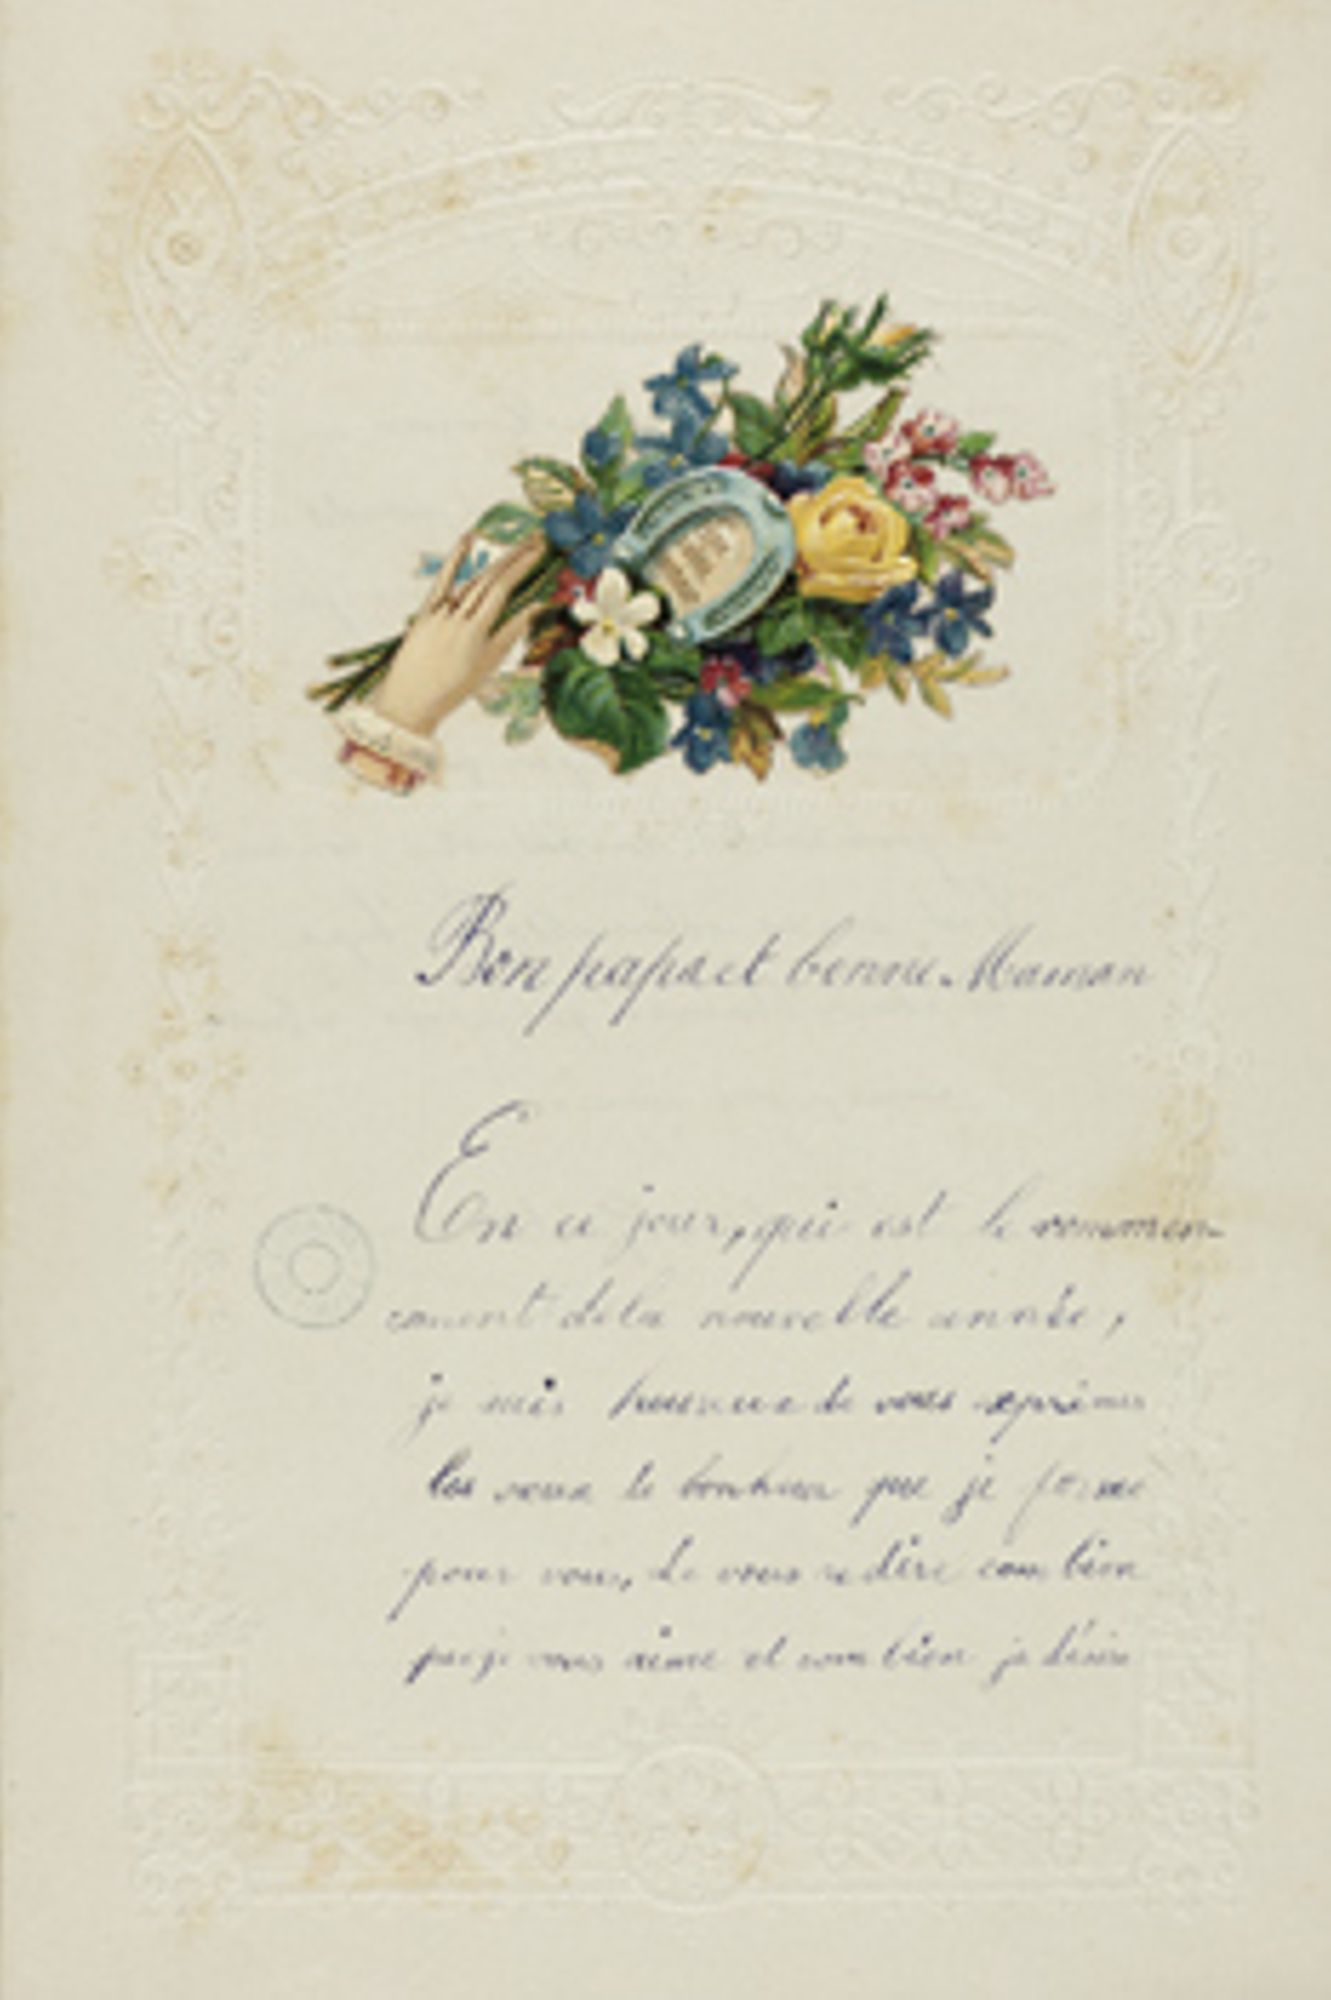 Bon papa et bonne Maman
En ce jour, qui est le commen
cement de la nouvelle année,
je suis heureuse de vous exprimer
les vœux de bonheur que je forme
pour vous, de vous redire combien
que je vous aime et combien je désire